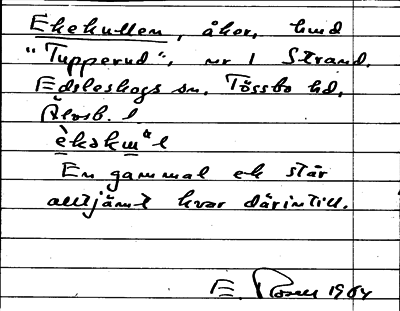 Ekekullen, åker, hmd
"Tupperud", nr 1 Strand.
Edsleskogs sn. Tössbo hd.
Älvsb. l
En gammal ek står
alltjämt kvar därintill.
E. Rosell 1964